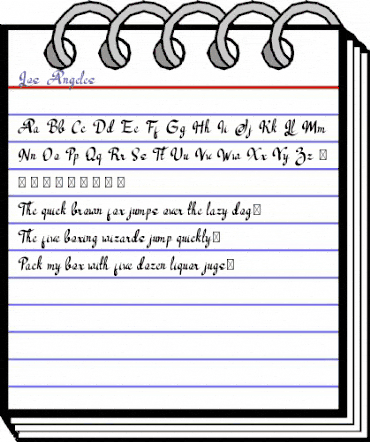 Los Angeles
Aa Bb Cc Dd Ee Ff Gg Hh Ii Jj Kk Ll Mm
Nn Oo Pp Qq Rr Ss Tt Uu Vv Ww Xx Yy Zz
The quick brown fox jumps over the lazy dog
The five boxing wizards jump quickly
Pack my box with five dozen liquor jugs